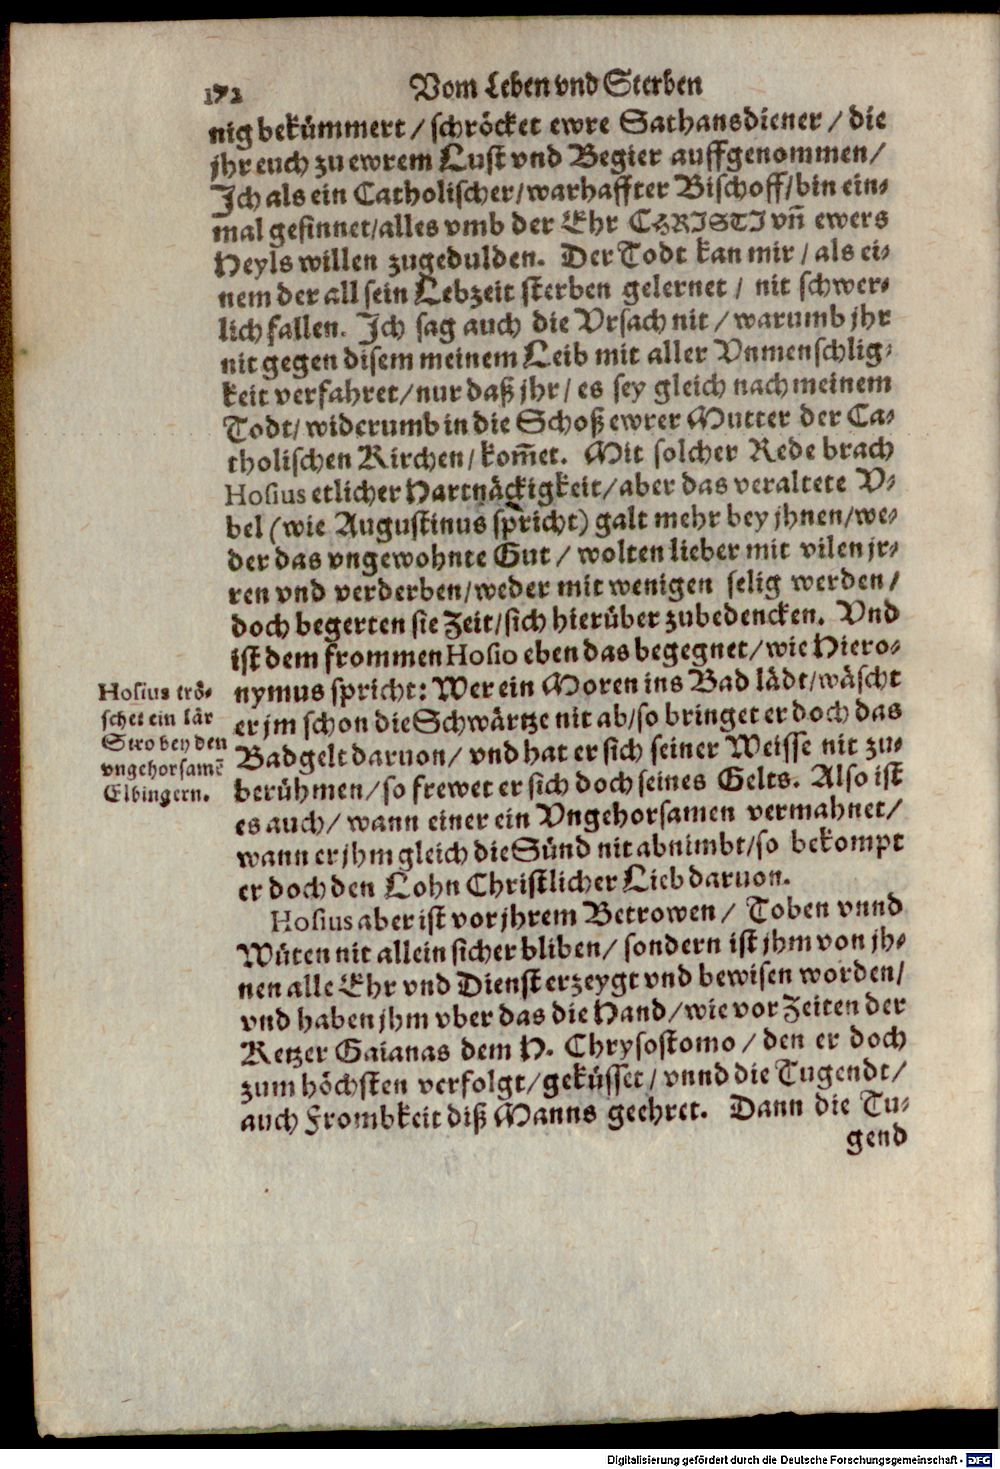 172 Vom Leben vnd Sterben
nig bekümmert / schröcket ewre Sathansdiener / die
jhr euch zu ewrem Lust vnd Begier auffgenommen /
Ich als ein Catholischer / warhaffter Bischoff / bin ein-
mal gesinnet / alles vmb der Ehr CHRISTI vñ ewers
Heyls willen zugedulden. Der Todt kan mir / als ei-
nem der all sein Lebzeit sterben gelernet / nit schwer-
lich fallen. Ich sag auch die Vrsach nit / warumb jhr
nit gegen disem meinem Leib mit aller Vnmenschlig-
keit verfahret / nur daß jhr / es sey gleich nach meinem
Todt / widerumb in die Schoß ewrer Mutter der Ca-
tholischen Kirchen / kom̃et. Mit solcher Rede brach
Hosius etlicher Hartnäckigkeit / aber das veraltete V-
bel (wie Augustinus spricht) galt mehr bey jhnen / we-
der das vngewohnte Gut / wolten lieber mit vilen jr-
ren vnd verderben / weder mit wenigen selig werden /
doch begerten sie Zeit / sich hierüber zubedencken. Vnd
ist dem frommen Hosio eben das begegnet / wie Hiero-
nymus spricht: Wer ein Moren ins Bad lädt / wäscht
er jm schon die Schwärtze nit ab / so bringet er doch das
Badgelt daruon / vnd hat er sich seiner Weisse nit zu-
berühmen / so frewet er sich doch seines Gelts. Also ist
es auch / wann einer ein Vngehorsamen vermahnet /
wann er jhm gleich die Sünd nit abnimbt / so bekompt
er doch den Lohn Christlicher Lieb daruon.
Hosius trö-
schet ein lär
Stro bey den
vngehorsamẽ
Elbingern.
Hosius aber ist vor jhrem Betrowen / Toben vnnd
Wüten nit allein sicher bliben / sondern ist jhm von jh-
nen alle Ehr vnd Dienst erzeygt vnd bewisen worden /
vnd haben jhm vber das die Hand / wie vor Zeiten der
Ketzer Gaianas dem H. Chrysostomo / den er doch
zum höchsten verfolgt / geküsset / vnnd die Tugendt /
auch Frombkeit diß Manns geehret. Dann die Tu-
gend
Digitalisierung gefördert durch die Deutsche Forschungsgemeinschaft - DFG